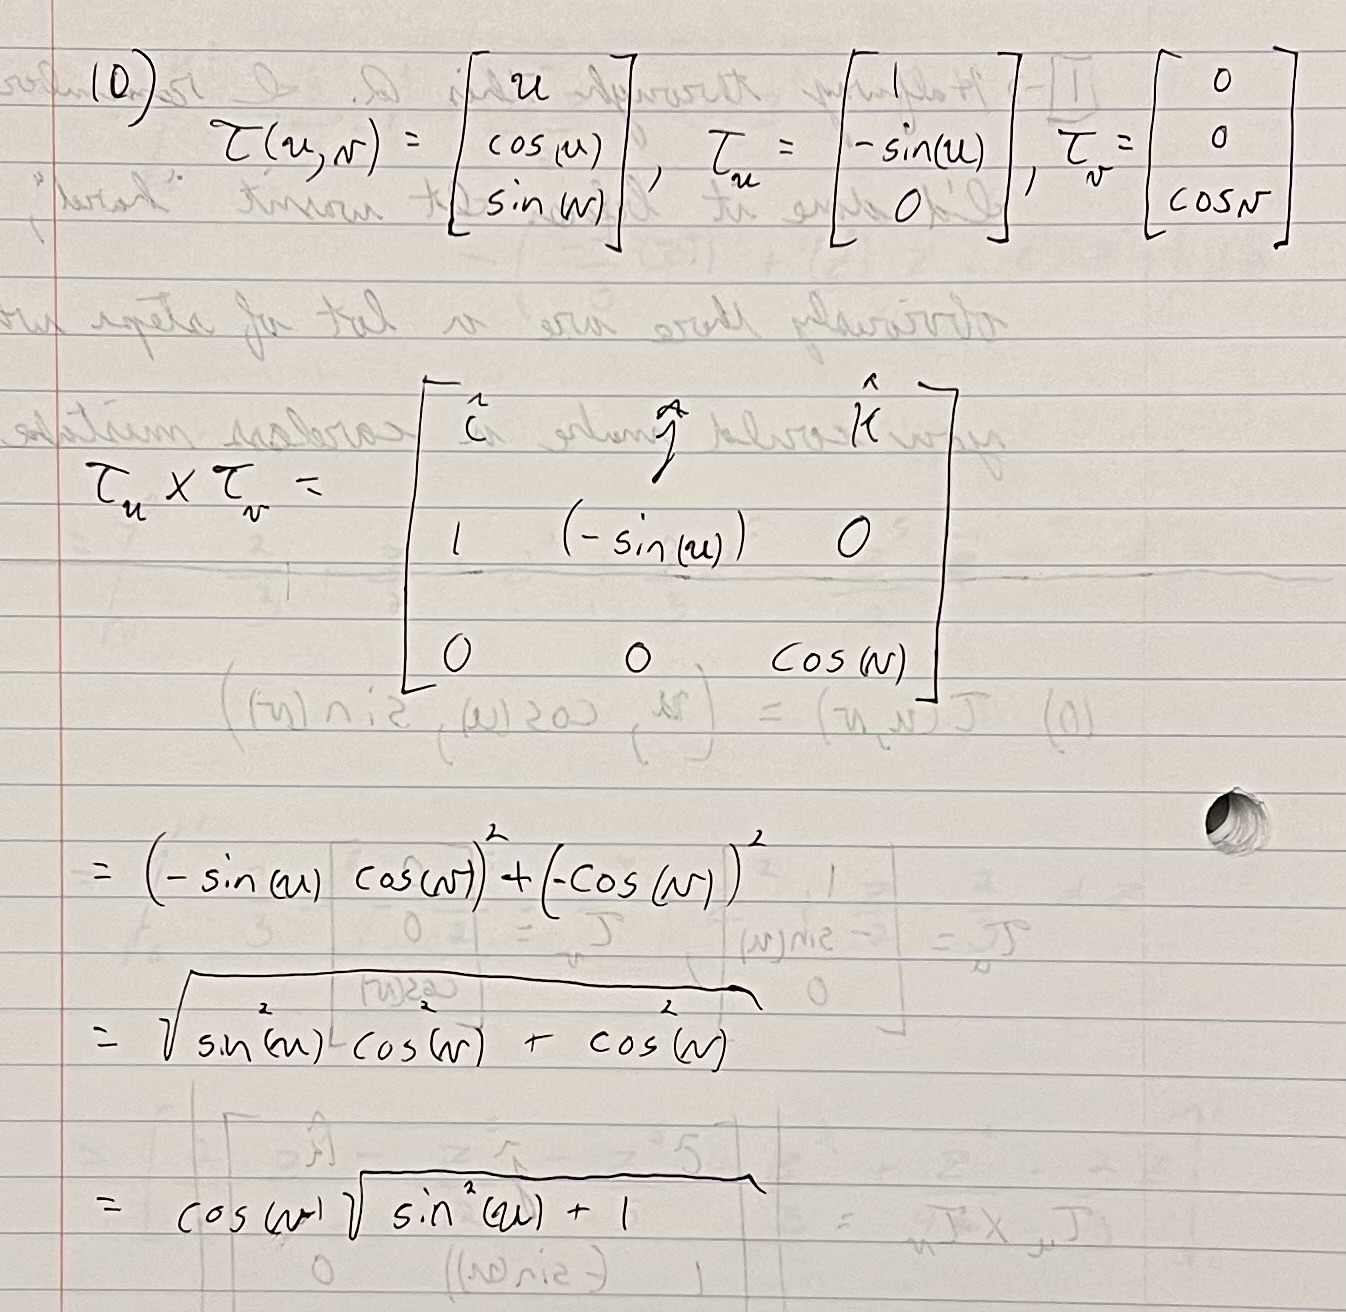 10)
τ(u,v) = [u cos(u) sin(v)], τ_u = [1 -sin(u) 0], τ_v = [0 0 cosv]
τ_u × τ_v = [î ĵ k̂
1 (-sin(u)) 0
0 0 cos(v)]
= (-sin(u) cos(v))² + (-cos(v))²
= √(sin²(u) cos²(v) + cos²(v))
= cos(v) √(sin²(u) + 1)